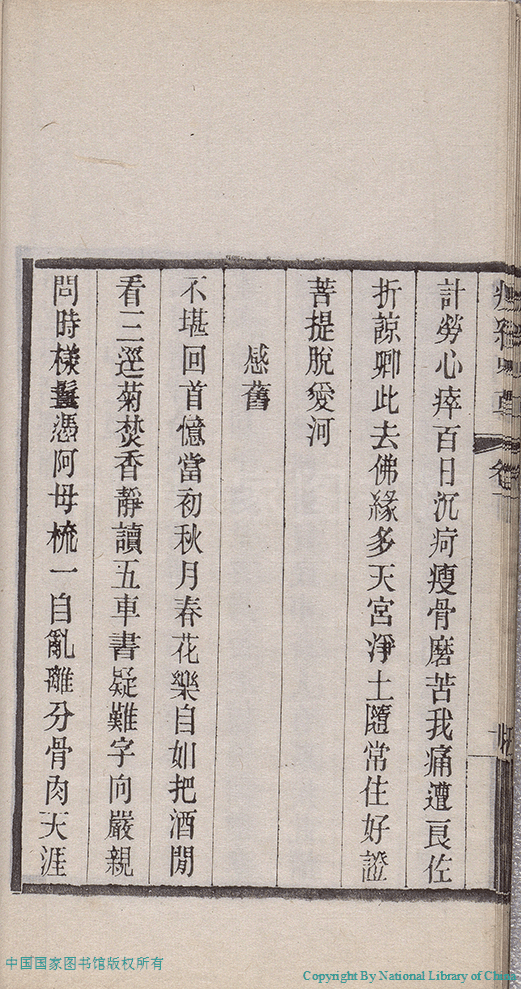 計勞心瘁百日沉疴瘦骨磨苦我痛遭良佐
折諒卿此去佛緣多天宮淨土隨常住好證
菩提脫愛河
感舊
不堪回首憶當初秋月春花樂自如把酒閒
看三逕菊焚香靜讀五車書疑難字向嚴親
問時樣鬟憑阿母梳一自亂離分骨肉天涯
中国国家图书馆版权所有
Copyright By National Library of China